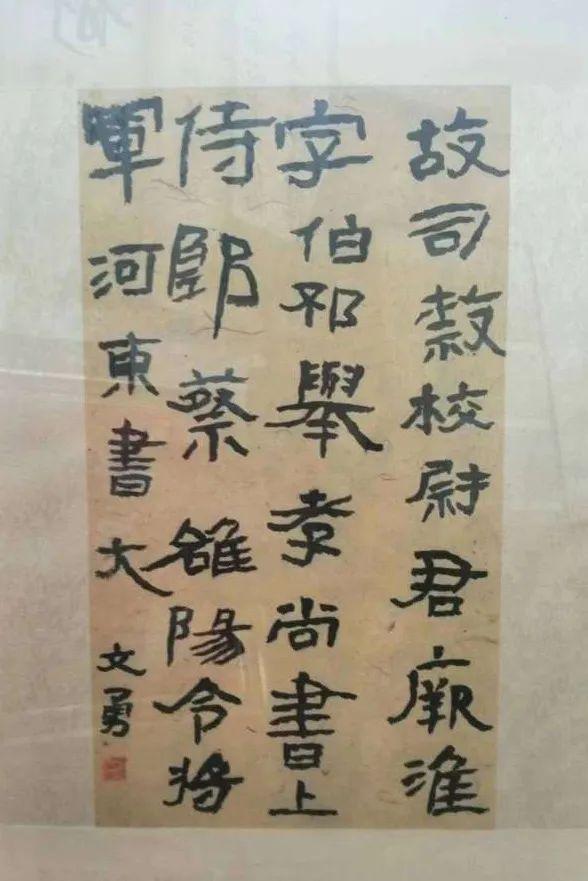 故司隸校尉君厥淮
字伯邳舉孝尚書上
侍郎蔡雒陽令將
軍河東書大 文勇